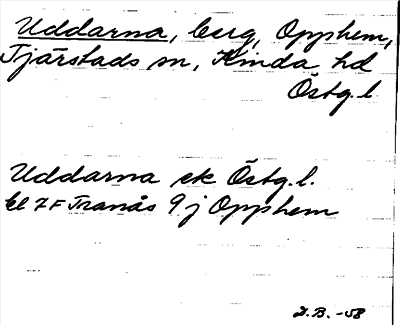 Uddarna, berg, Opphem,
Tjärstads sn, Kinda hd
Östg. l.
Uddarna ek Östg. l.
bl 7F Tranås 9 j Opphem
J.B. -58